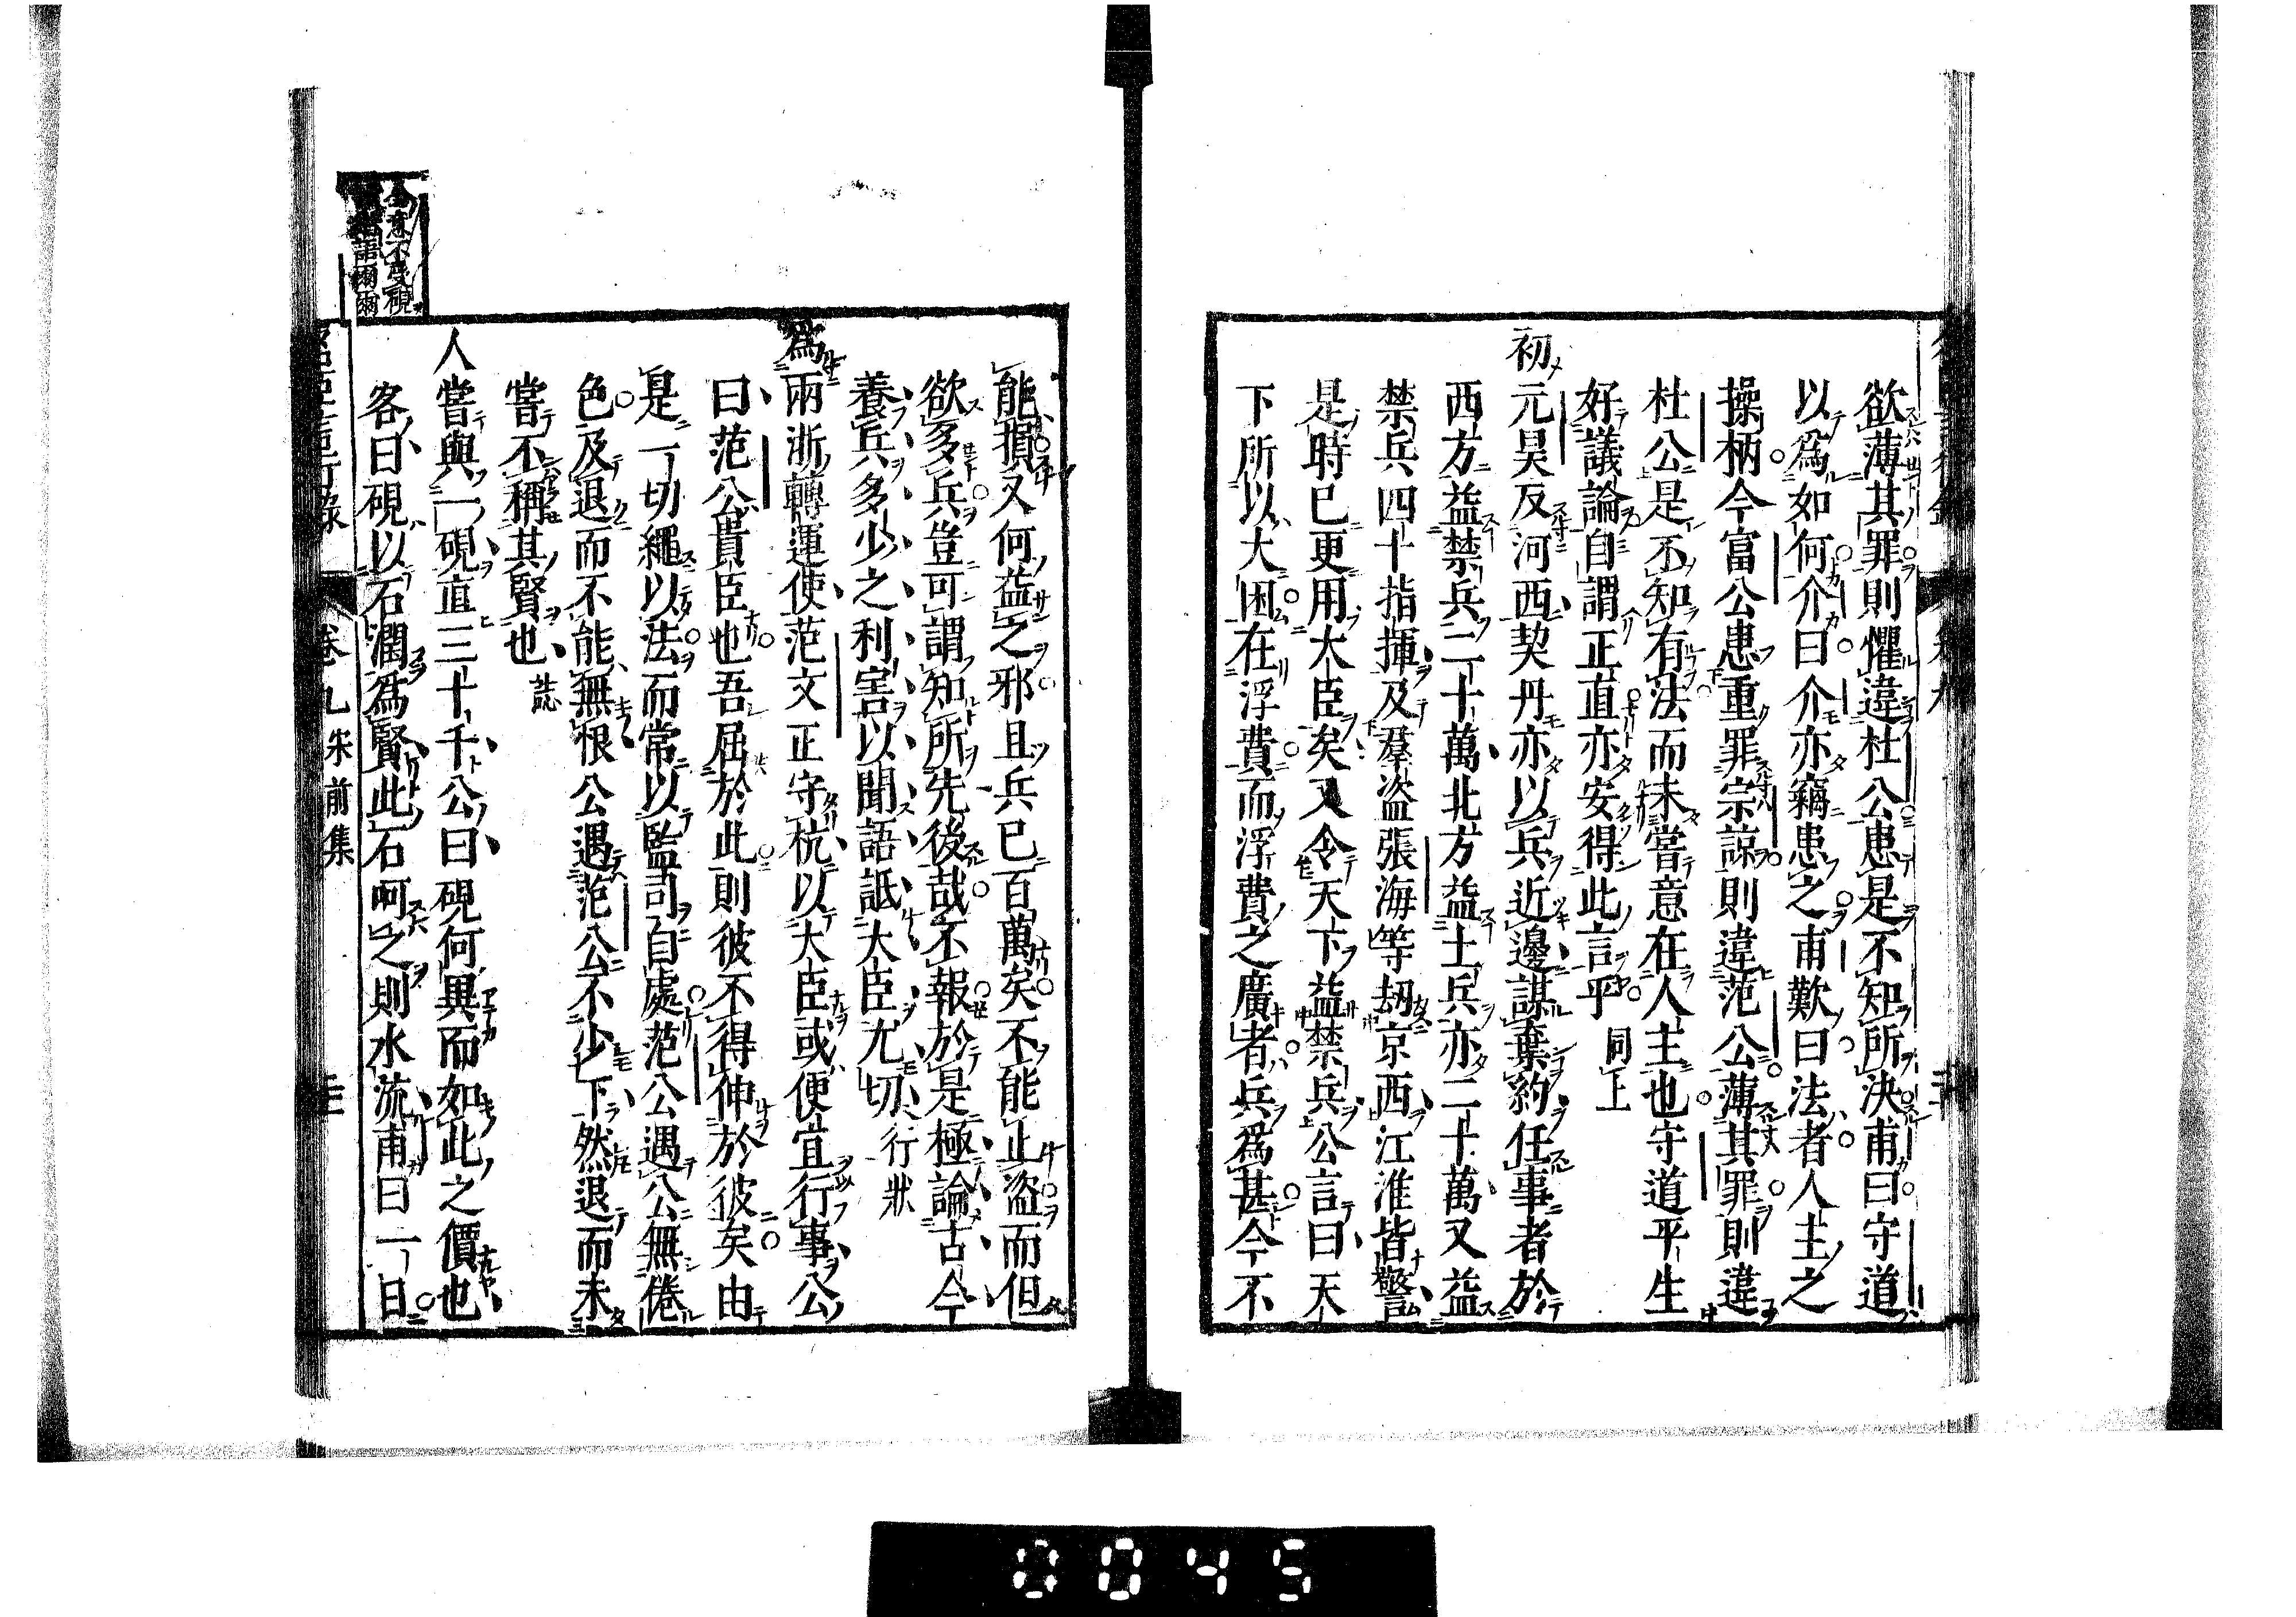 欲薄其罪則懼違杜公患是不知所決甫曰守道
以爲如何介曰介亦竊患之甫歎曰法者人主之
操柄今富公患重罪宗諒則違范公薄其罪則違
杜公是不知有法而未嘗意在人主也守道平生
好議論自謂正直亦安得此言乎 同上
初元昊反河西契丹亦以兵近邊謀棄約任事者於
西方益禁兵二十萬北方益土兵亦二十萬又益
禁兵四十指揮及羣盜張海等刼京西江淮皆警
是時已更用大臣矣又令天下益禁兵公言曰天
下所以大困在浮費而浮費之廣者兵爲甚今不
能損又何益之邪且兵已百萬矣不能止盜而但
欲多兵豈可謂知所先後哉不報於是極論古今
養兵多少之利害以聞語詆大臣尤切 行狀
爲兩浙轉運使范文正守杭以大臣或便宜行事公
曰范公貴臣也吾屈於此則彼不得伸於彼矣由
是一切繩以法而常以監司自處范公遇公無倦
色及退而不能無恨公遇范公不少下然退而未
嘗不稱其賢也 誌
人嘗與一硯直三十千公曰硯何異而如此之價也
客曰硯以石潤爲賢此石呵之則水流甫曰一日
意不受硯
語爾爾
卷九 宋前集
0045